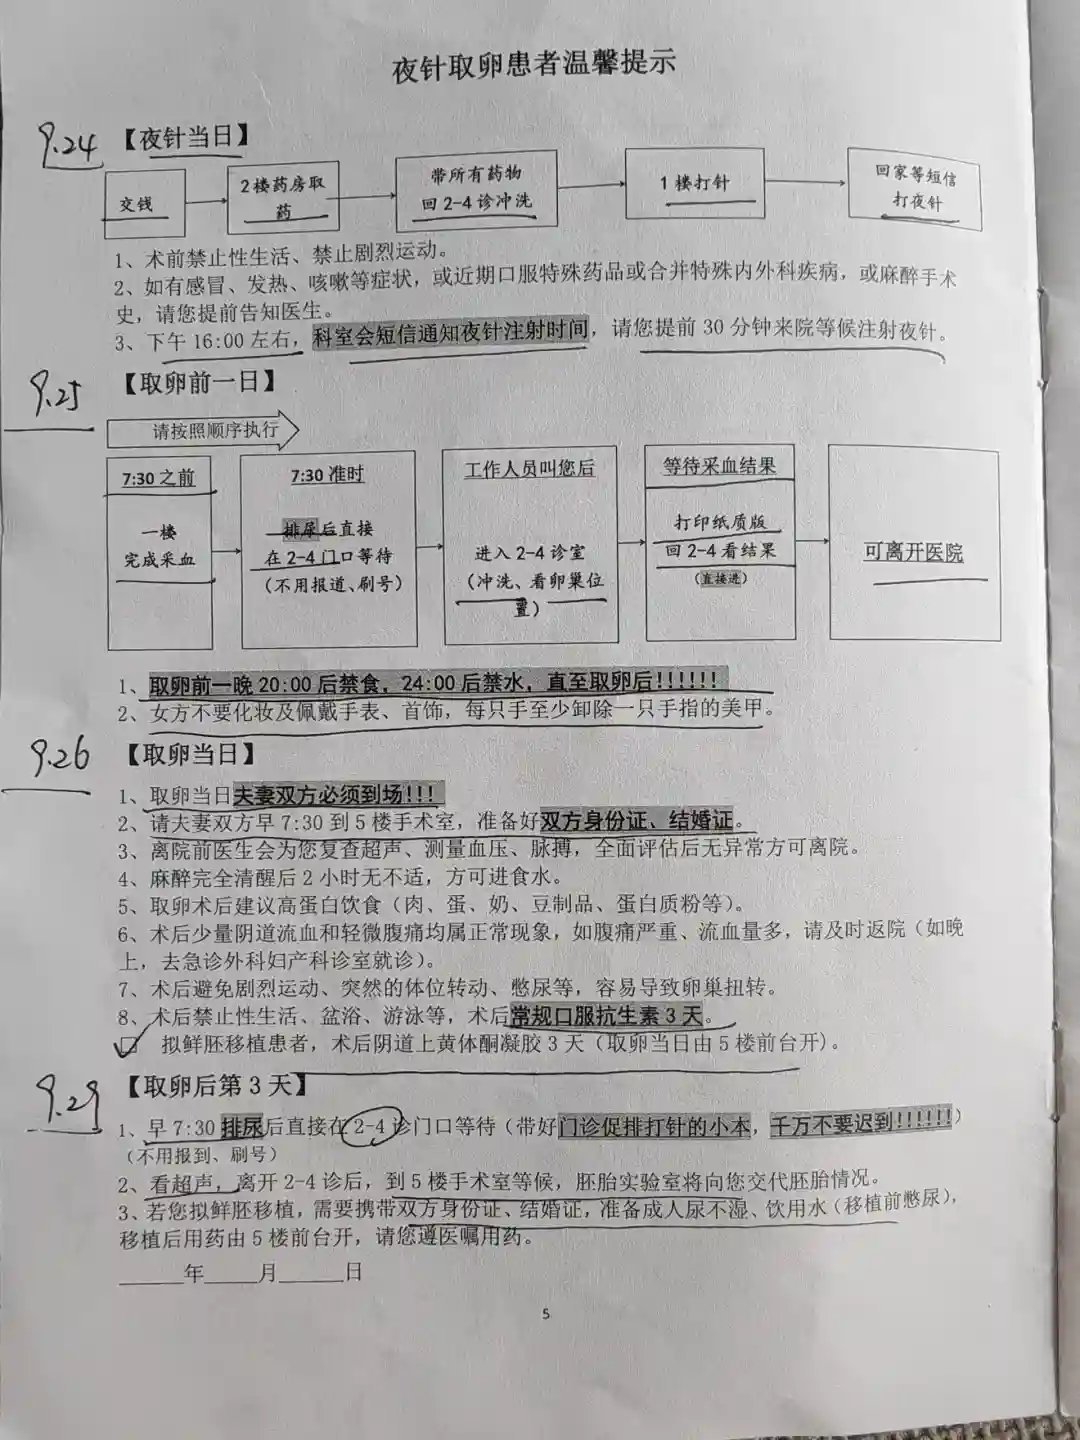 夜针取卵患者温馨提示
9.24 【夜针当日】
交钱
2楼药房取
药
带所有药物
回2-4诊冲洗
1楼打针
回家等短信
打夜针
1、术前禁止性生活、禁止剧烈运动。
2、如有感冒、发热、咳嗽等症状，或近期口服特殊药品或合并特殊内外科疾病，或麻醉手术
史，请您提前告知医生。
3、下午16:00左右，科室会短信通知夜针注射时间，请您提前30分钟来院等候注射夜针。
9.25 【取卵前一日】
请按照顺序执行
7:30之前
一楼
完成采血
7:30准时
排尿后直接
在2-4门口等待
（不用报道、刷号）
工作人员叫您后
进入2-4诊室
（冲洗、看卵巢位
置）
等待采血结果
打印纸质版
回2-4看结果
（直接进）
可离开医院
1、取卵前一晚20:00后禁食，24:00后禁水，直至取卵后!!!!!!
2、女方不要化妆及佩戴手表、首饰，每只手至少卸除一只手指的美甲。
9.26 【取卵当日】
1、取卵当日夫妻双方必须到场!!!
2、请夫妻双方早7:30到5楼手术室，准备好双方身份证、结婚证。
3、离院前医生会为您复查超声、测量血压、脉搏，全面评估后无异常方可离院。
4、麻醉完全清醒后2小时无不适，方可进食水。
5、取卵术后建议高蛋白饮食（肉、蛋、奶、豆制品、蛋白质粉等）。
6、术后少量阴道流血和轻微腹痛均属正常现象，如腹痛严重、流血量多，请及时返院（如晚
上，去急诊外科妇产科诊室就诊）。
7、术后避免剧烈运动、突然的体位转动、憋尿等，容易导致卵巢扭转。
8、术后禁止性生活、盆浴、游泳等，术后常规口服抗生素3天。
☑ 拟鲜胚移植患者，术后阴道上黄体酮凝胶3天（取卵当日由5楼前台开）。
9.29 【取卵后第3天】
1、早7:30排尿后直接在2-4诊门口等待（带好门诊促排打针的小本，千万不要迟到!!!!!!）
（不用报到、刷号）
2、看超声，离开2-4诊后，到5楼手术室等候，胚胎实验室将向您交代胚胎情况。
3、若您拟鲜胚移植，需要携带双方身份证、结婚证，准备成人尿不湿、饮用水（移植前憋尿），
移植后用药由5楼前台开，请您遵医嘱用药。
______年_____月______日
5